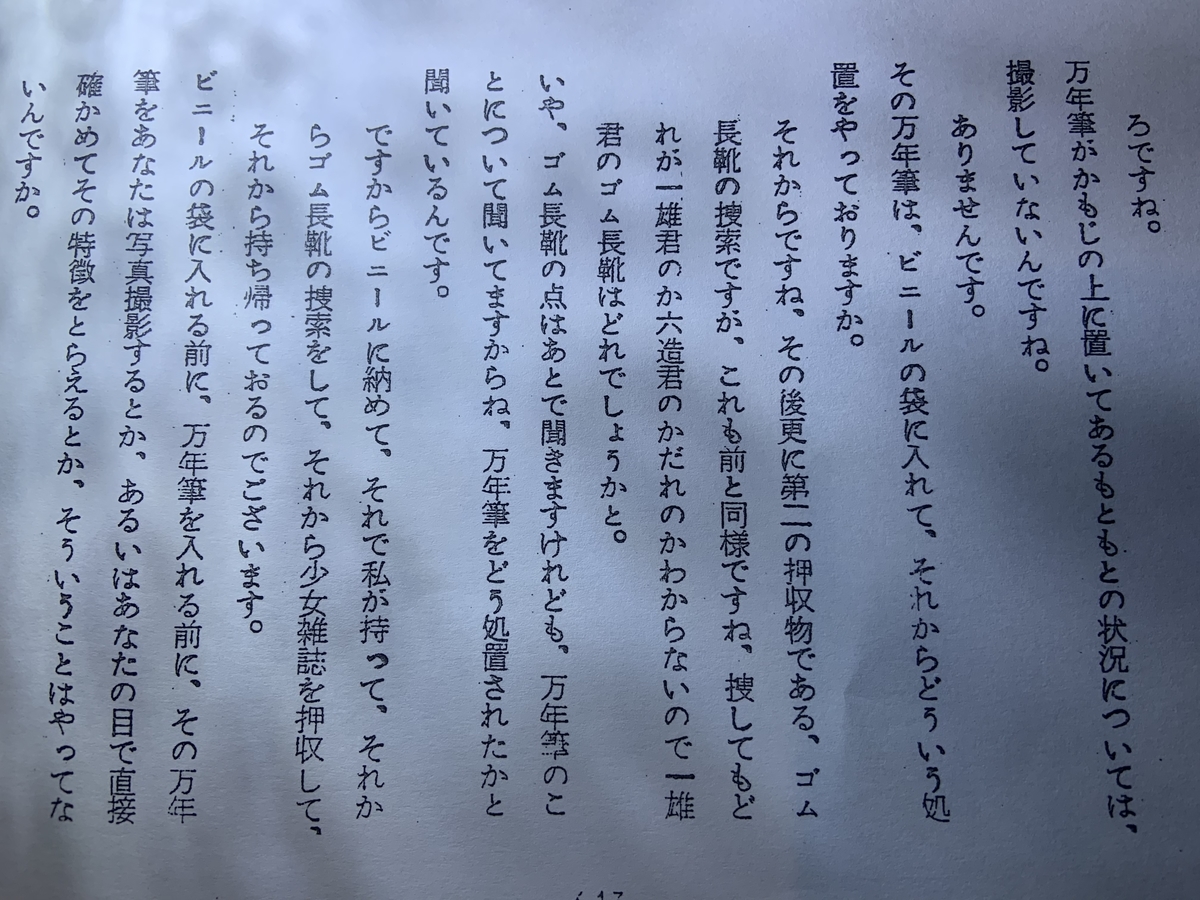 ろですね。
万年筆がかもじの上に置いてあるもともとの状況については、
撮影していないんですね。
ありませんです。
その万年筆は、ビニールの袋に入れて、それからどういう処
置をやっておりますか。
それからですね、その後更に第二の押収物である、ゴム
長靴の捜索ですが、これも前と同様ですね、捜してもど
れが一雄君のか六造君のかだれのかわからないので一雄
君のゴム長靴はどれでしょうかと。
いや、ゴム長靴の点はあとで聞きますけれども、万年筆のこ
とについて聞いてますからね、万年筆をどう処置されたかと
聞いているんです。
ですからビニールに納めて、それで私が持って、それか
らゴム長靴の捜索をして、それから少女雑誌を押収して、
それから持ち帰っておるのでございます。
ビニールの袋に入れる前に、万年筆を入れる前に、その万年
筆をあなたは写真撮影するとか、あるいはあなたの目で直接
確かめてその特徴をとらえるとか、そういうことはやってな
いんですか。